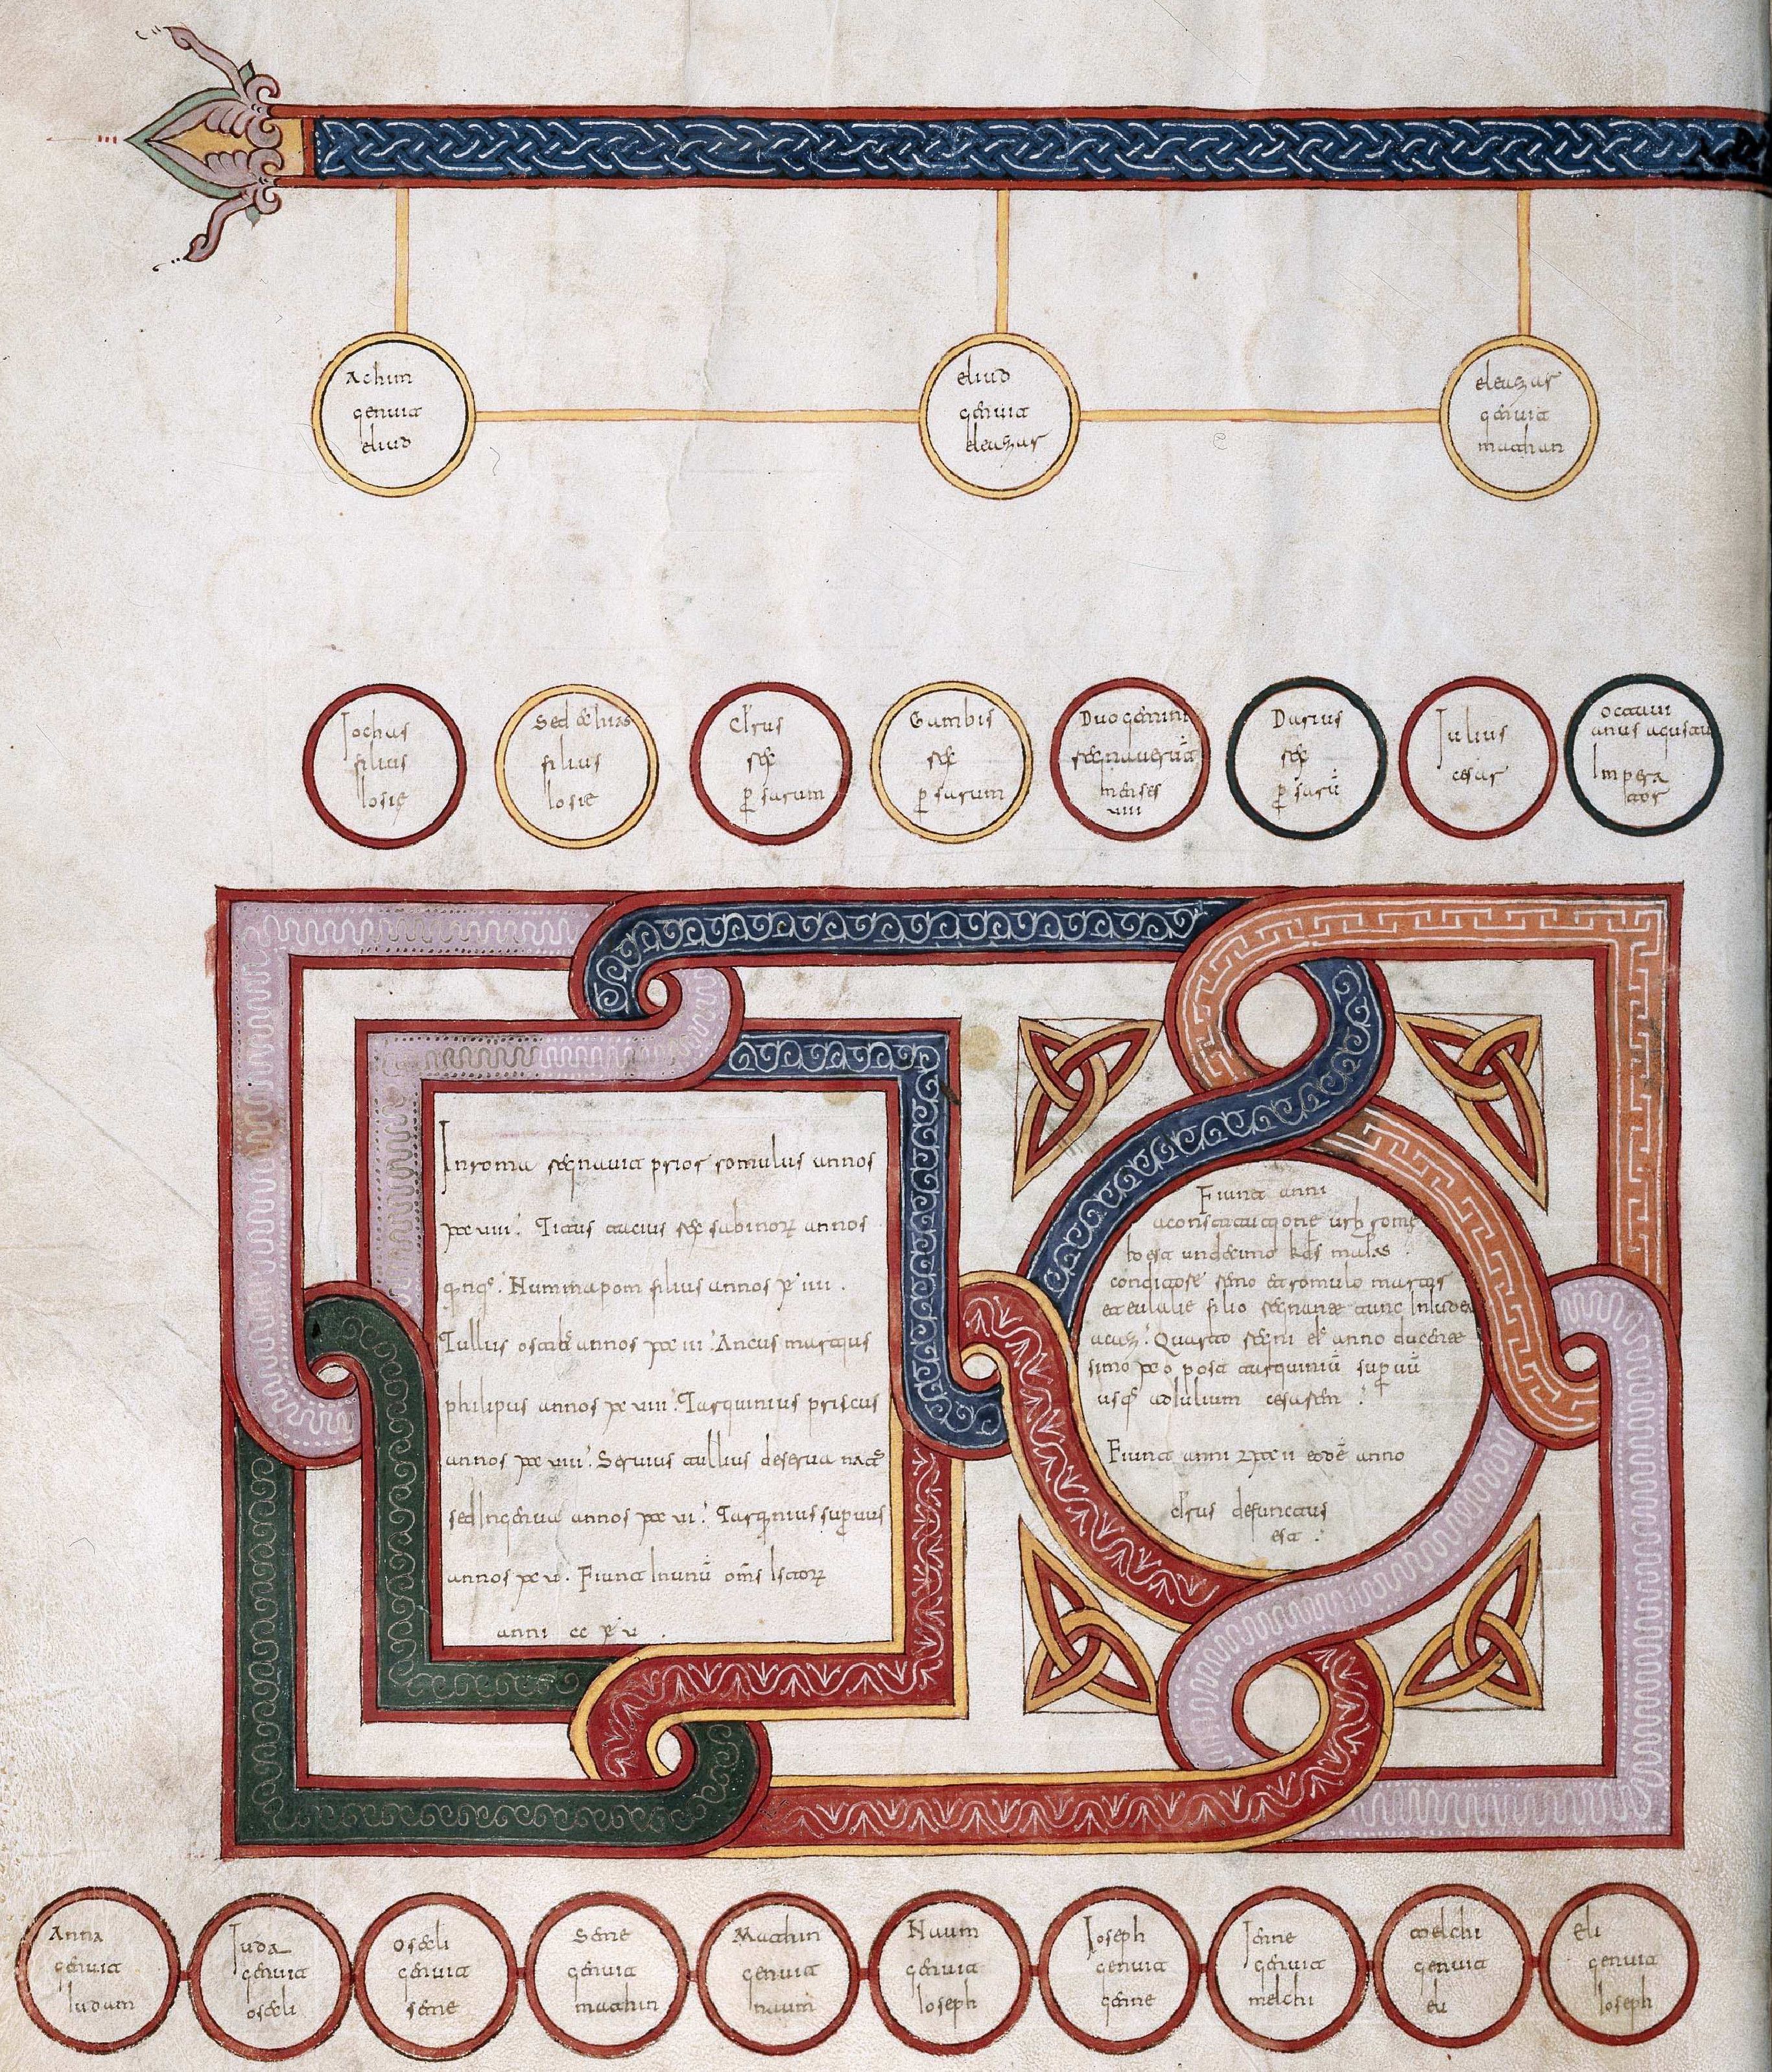 Achim
genuit
eliud
eliud
genuit
eleazar
eleazar
genuit
mathan
Iochas
filius
Iosie
Sedechias
filius
Iosie
Cirus
rex
persarum
Gambis
rex
persarum
Duo gemini
regnauerunt
menses
uiii
Darius
rex
persarū
Iulius
cesar
octaui
anus agustus
Impera
tor
In roma regnauit prior romulus annos
xxxuiii. Titus tatius rex sabinorum annos
quinque. Numma pom filius annos xliii.
Tullius annos xxxiii. Ancus martius
philipus annos xxuiii. Tarquinius priscus
annos xxxuiii. Seruius tullius de serua natus
sed Ingenua annos xxxui. Tarquinius superuus
annos xxu. Fiunt In unū omnes
anni cc xl u.
Fiunt anni
a constitutione urb rome
anno
et romulo martis
filio regnante tunc In iudea
acaz. Quarto regni anno
simo xo post tarquiniū superuū
usque ad Iulium cesarem.
Fiunt anni eodē anno
cirus defunctus
est.
Anna
genuit
Iudam
Iuda
genuit
osech
osech
genuit
seme
Seme
genuit
mathin
Mathin
genuit
naum
Naum
genuit
Ioseph
Ioseph
genuit
genne
Ienne
genuit
melchi
Melchi
genuit
eli
Eli
genuit
Ioseph